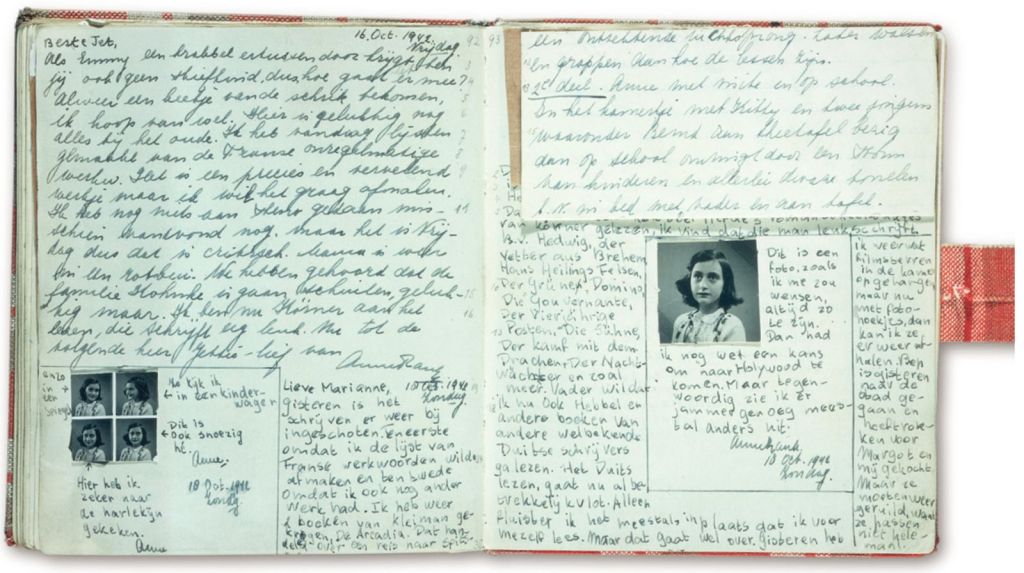 16. Oct. 1942.
Vrijdag
92
Beste Jet,
Als Emmy een krabbel ertusven door krijgt, ben
jij ook geen stiefkind, dus hoe gaat er mee?
Alweer een beetje van de schrik bekomen,
ik hoop van wel. Hier is gelukkig nog
alles bij het oude. Ik heb vandaag lijsten
gemaakt van de Franse onregelmatige
werkw. Het is een precies en vervelend
werkje maar ik wil het graag afmaken.
Ik heb nog niets aan steno gedaan mis-
schien vanavond nog, maar het is Vrij-
dag dus dat is critisch. Mama is weer
in een
We hebben gehoord dat de
familie
is gaan schuilen, geluk-
kig maar. Ik ben nu Körner aan het
lezen, die schrijft erg leuk. Nu tot de
volgende keer Jettie-lief van
Anne Frank
enzo
in
een
No kijk ik
in een kinder-
wagen
Dit is
ook snoezig
hè.
Anne.
Hier heb ik
zeker naar
de harlekijn
gekeken.
Anne
18 Oct. 1942
Zondag.
Lieve Marianne,
18 Oct. 1942
Zondag
gisteren is het
schrijven er weer bij
ingeschoten. Eneerste
omdat ik de lijst van
Franse werkwoorden wilde
afmaken en ten twede
omdat ik ook nog ander
werk had. Ik heb weer
2 boeken van kleiman ge-
kregen. De Arcadia. Dat han-
deld over een reis naar Spits-
93
een ontzettende luchtsprong. Later walsen
en grappen Aan hoe de lessen zijn.
2e deel. Anne met
op school.
In het kamertje met Kitty en twee jongens
waaronder Bernd aan theetafel bezig
dan op school omringd door een
kan kinderen en allerlei dwaze tonelen
b.v. in bed met vader en aan tafel.
van körner gelezen, ik vind dat die man leuk schrijft.
B.v. Hedwig, der
Vetter aus Brehem,
Hans Heilings Felsen,
Der grüne Domino,
Die Gouvernante,
Der Vierjährige
Posten, Die Sühne,
Der kamf mit dem
Drachen, Der Nacht-
wächter en zoo
meer. Vader wil dat
ik nu ook Hebbel en
andere boeken van
andere welbekende
Duitse schrijvers
ga lezen. Het Duits
lezen, gaat nu al be-
trekkelijk vlot. Alleen
fluister ik het meestal, in plaats dat ik voor
mezelf lees. Maar dat gaat wel over. gisteren heb
Dit is een
foto, zoals
ik me zou
wensen,
altijd zo
te zijn.
Dan had
ik nog wel een kans
om naar Holywood te
komen. Maar tegen-
woordig zie ik er
jammer genoeg mees-
tal anders uit.
Annefrank.
18 Oct. 1942
Zondag.
ik veeruit
filmsterren
in de kamer
opgehangen,
maar nu
met foto-
hoekjes, dan
kan ik ze,
er weer af-
halen. Bep
is gisteren
naar de
stad ge-
gaan en
heeft rok-
ken voor
Margot en
mij gekocht
Maar ze
moeten weer
geruild, want
ze passen
niet hele-
maal.